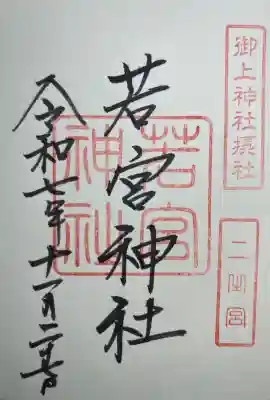 御上神社摂社
二之宮
若宮神社
若宮神社
令和七年十一月二十四日